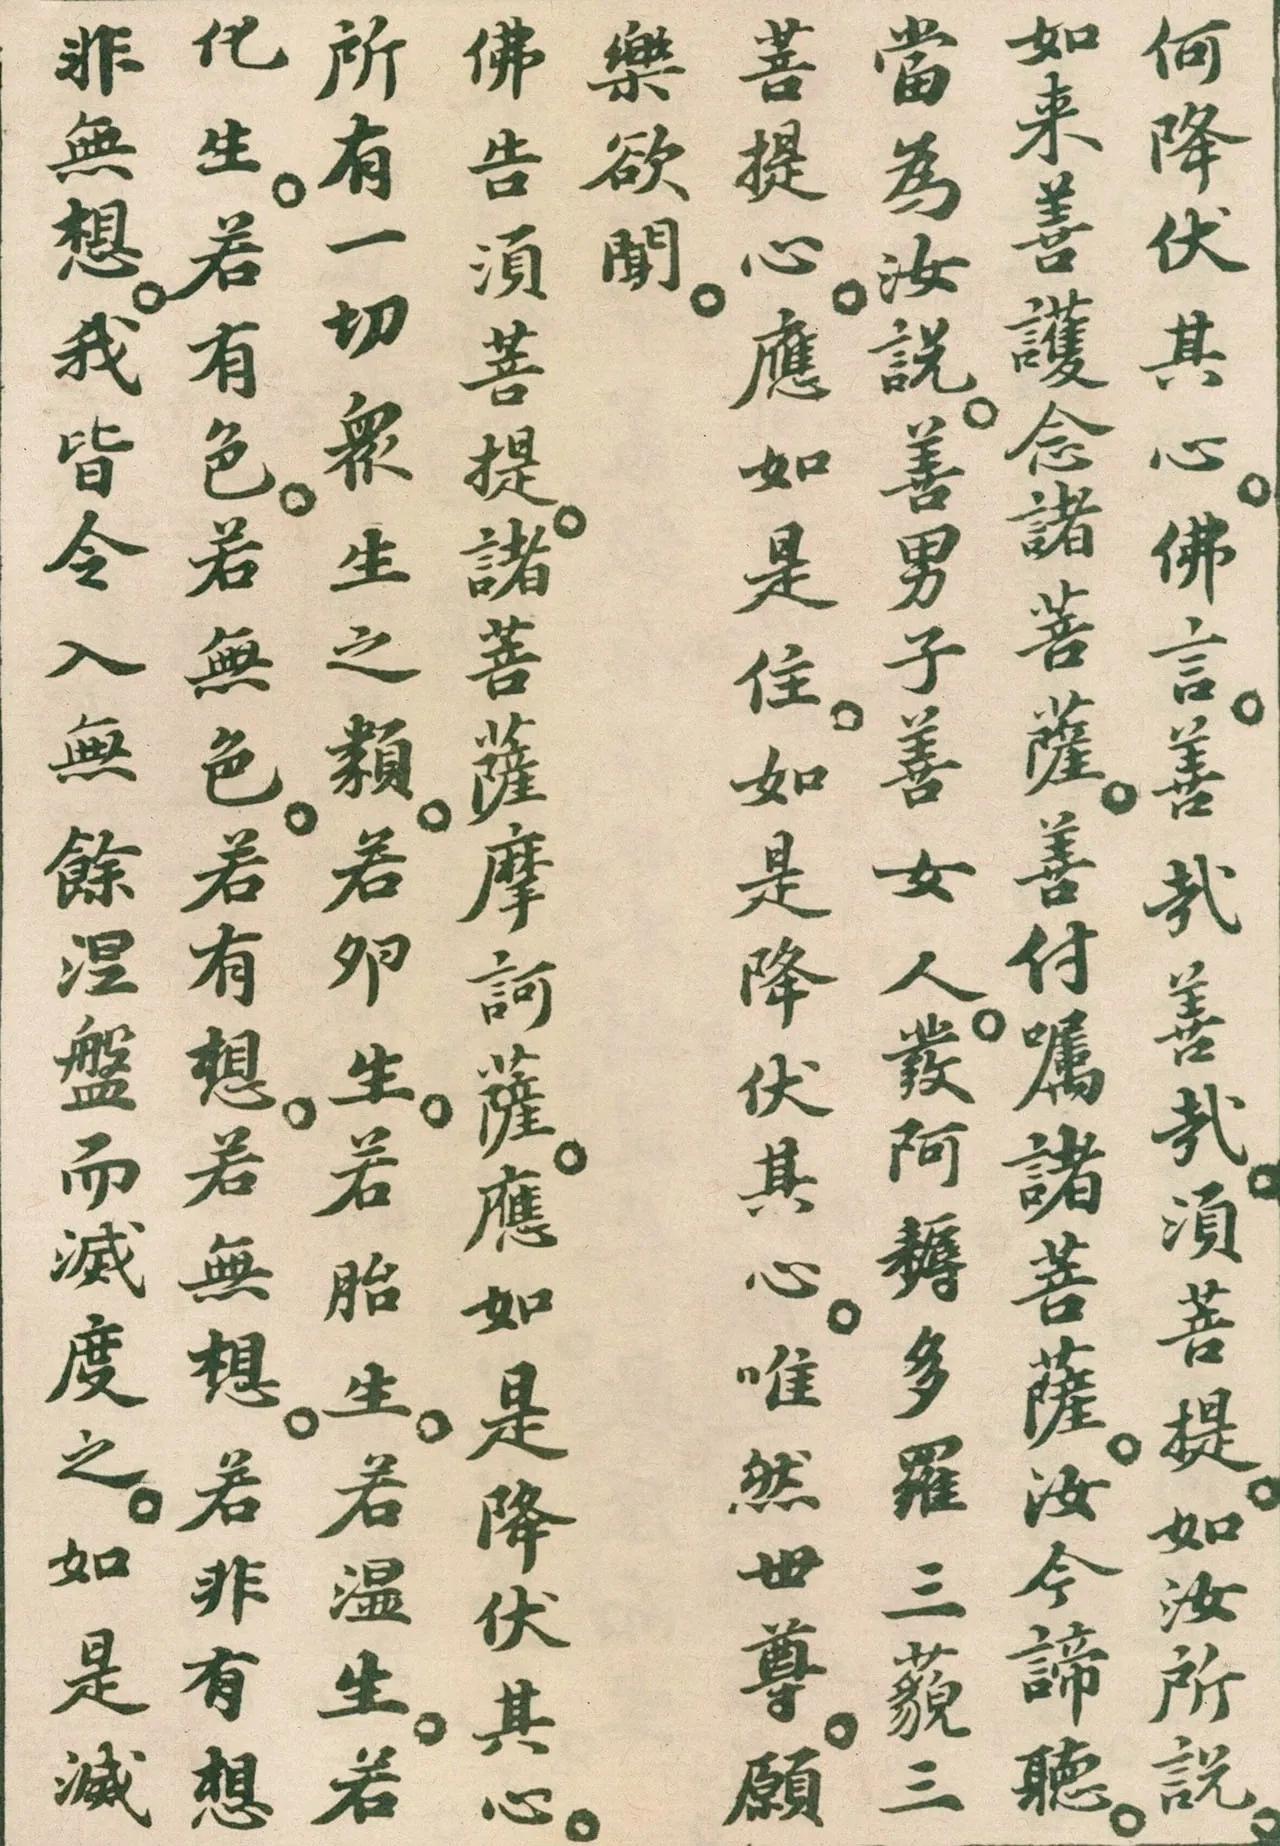 何降伏其心。佛言。善哉善哉。須菩提。如汝所説。
如来善護念諸菩薩。善付囑諸菩薩。汝今諦聽。
當為汝説。善男子善女人。發阿耨多羅三藐三
菩提心。應如是住。如是降伏其心。唯然世尊。願
樂欲聞。
佛告須菩提。諸菩薩摩訶薩。應如是降伏其心。
所有一切衆生之類。若卵生。若胎生。若温生。若
化生。若有色。若無色。若有想。若無想。若非有想
非無想。我皆令入無餘涅盤而滅度之。如是滅